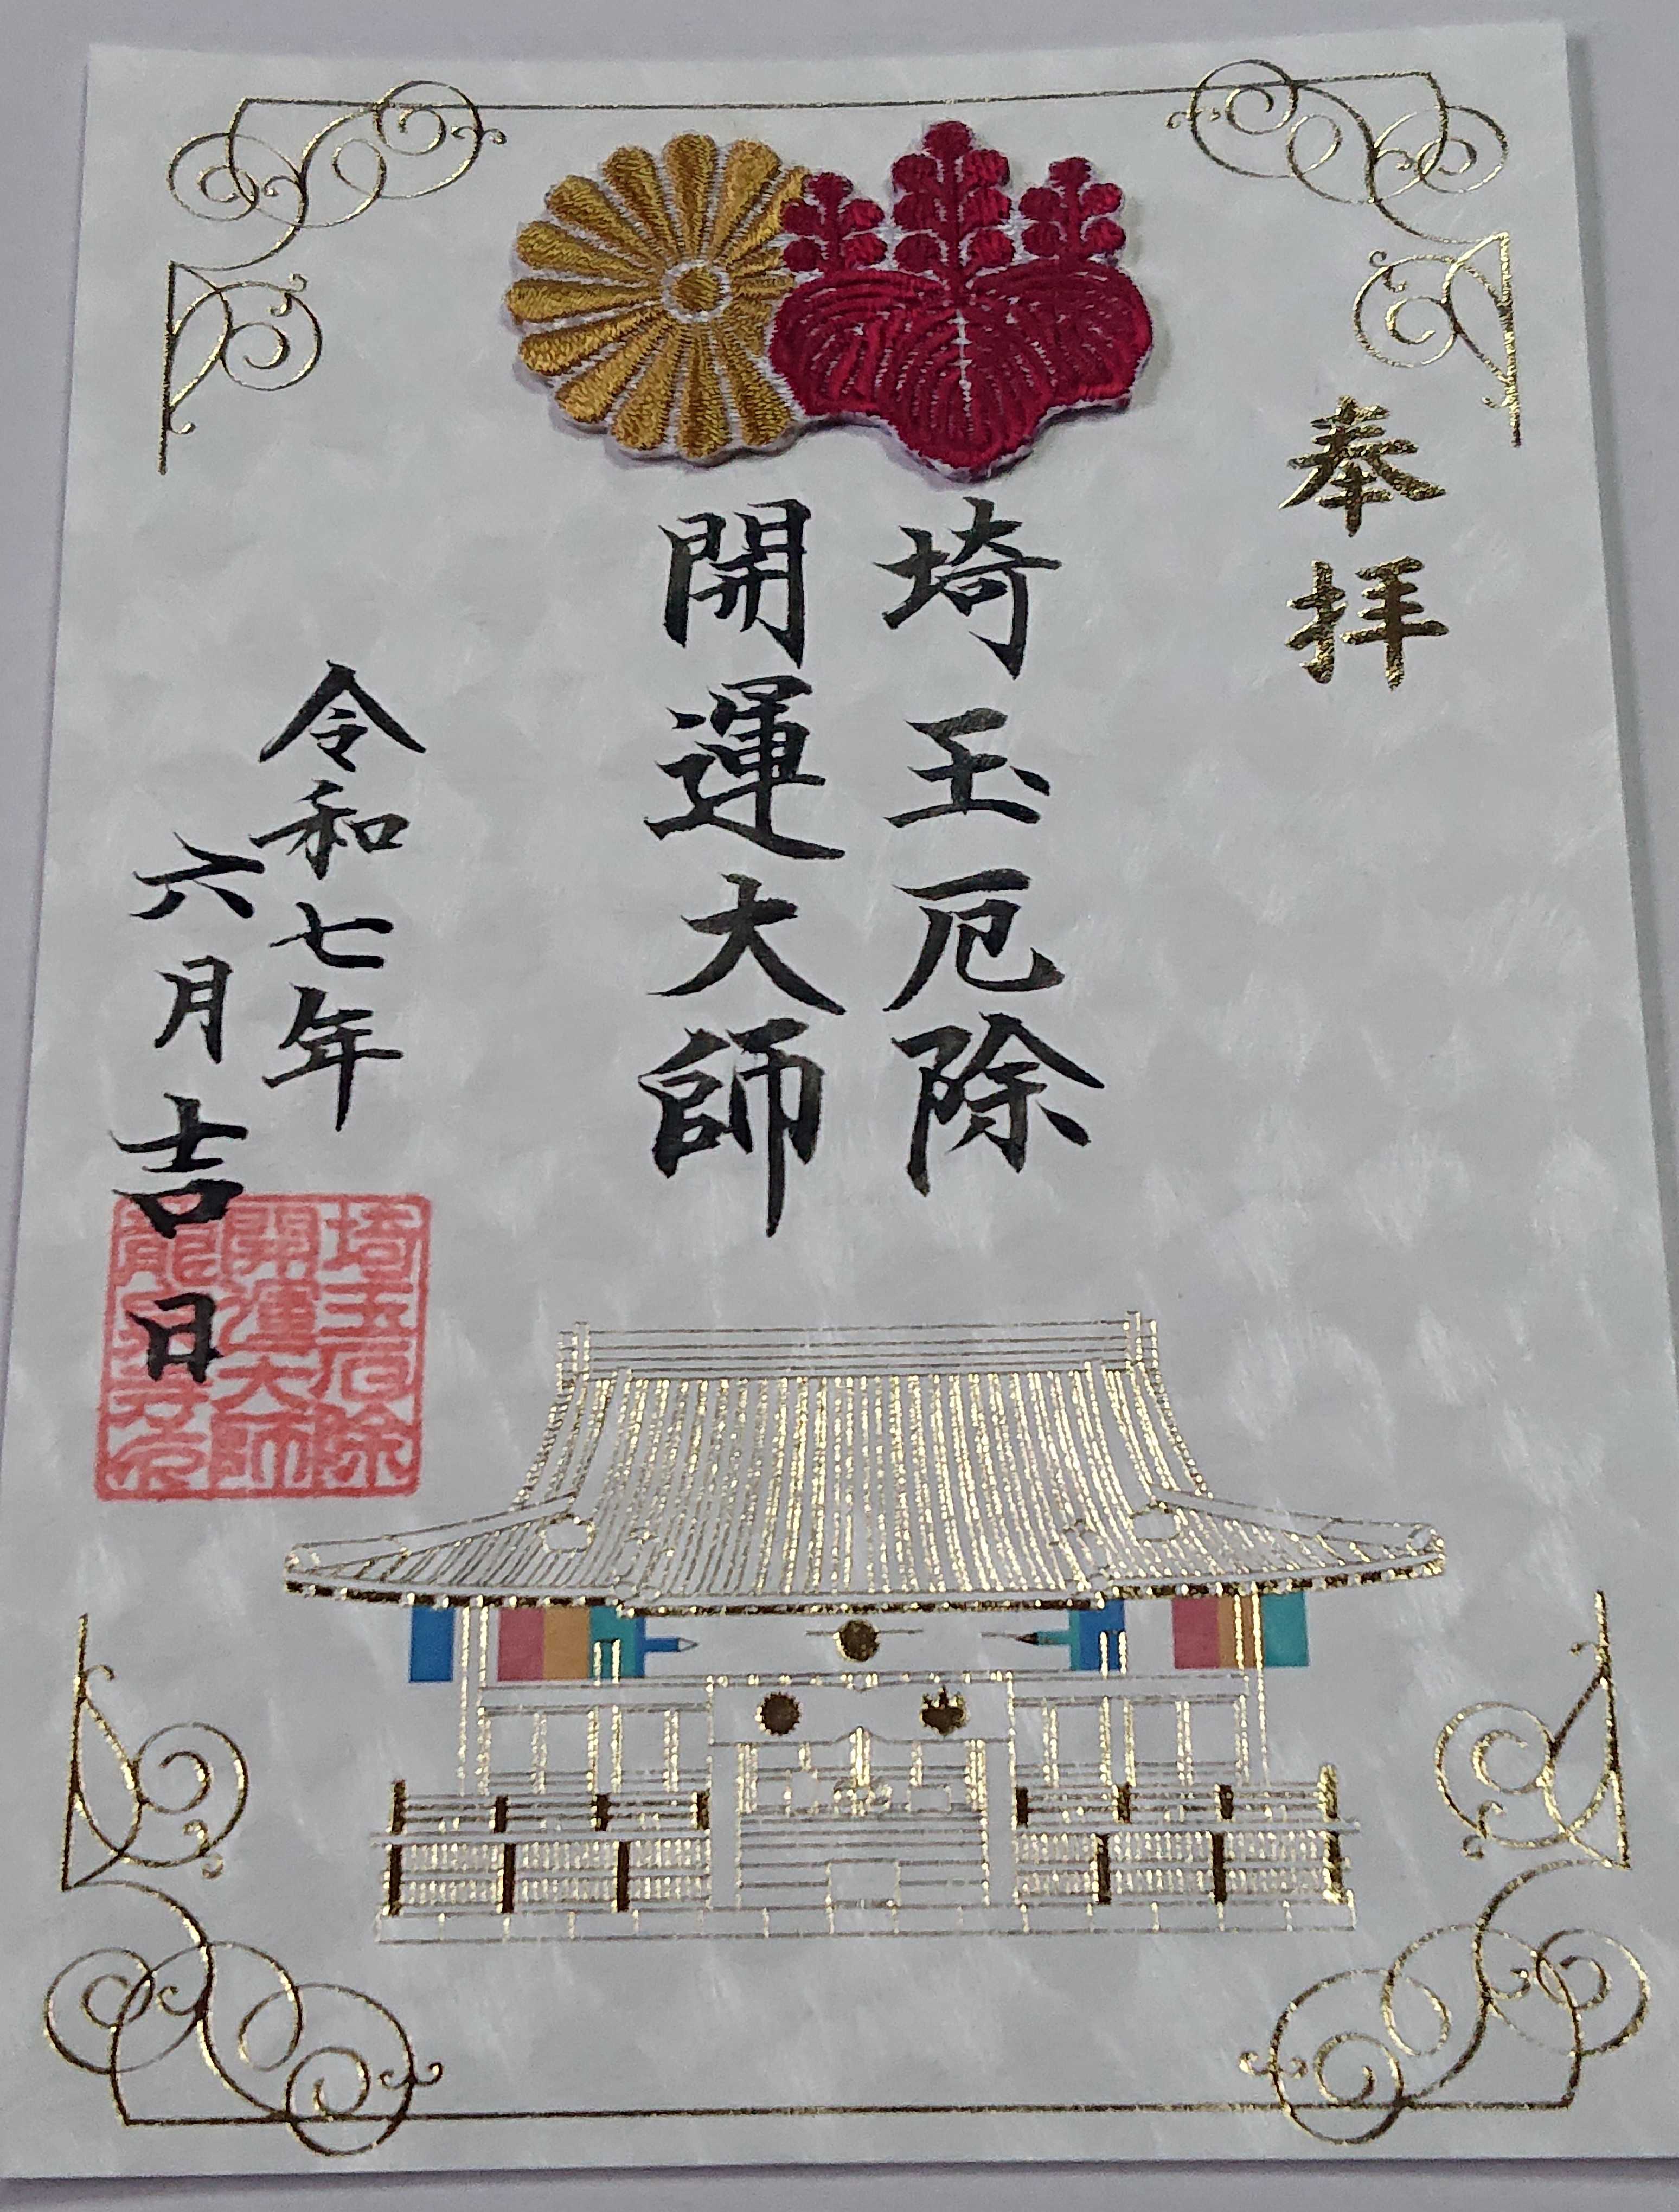 奉拝
埼玉厄除
開運大師
令和七年
六月吉日
埼玉厄除
開運大師
龍泉寺印